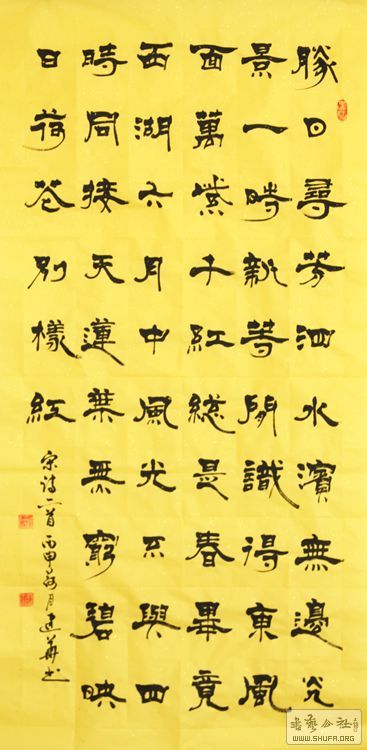 勝日尋芳泗水濱無邊光
景一時新等閒識得東風
面萬紫千紅總是春畢竟
西湖六月中風光不與四
時同接天蓮葉無窮碧映
日荷花別樣紅
宋詩二首丙申月建華書
書藝公社
WWW.SHUFA.ORG